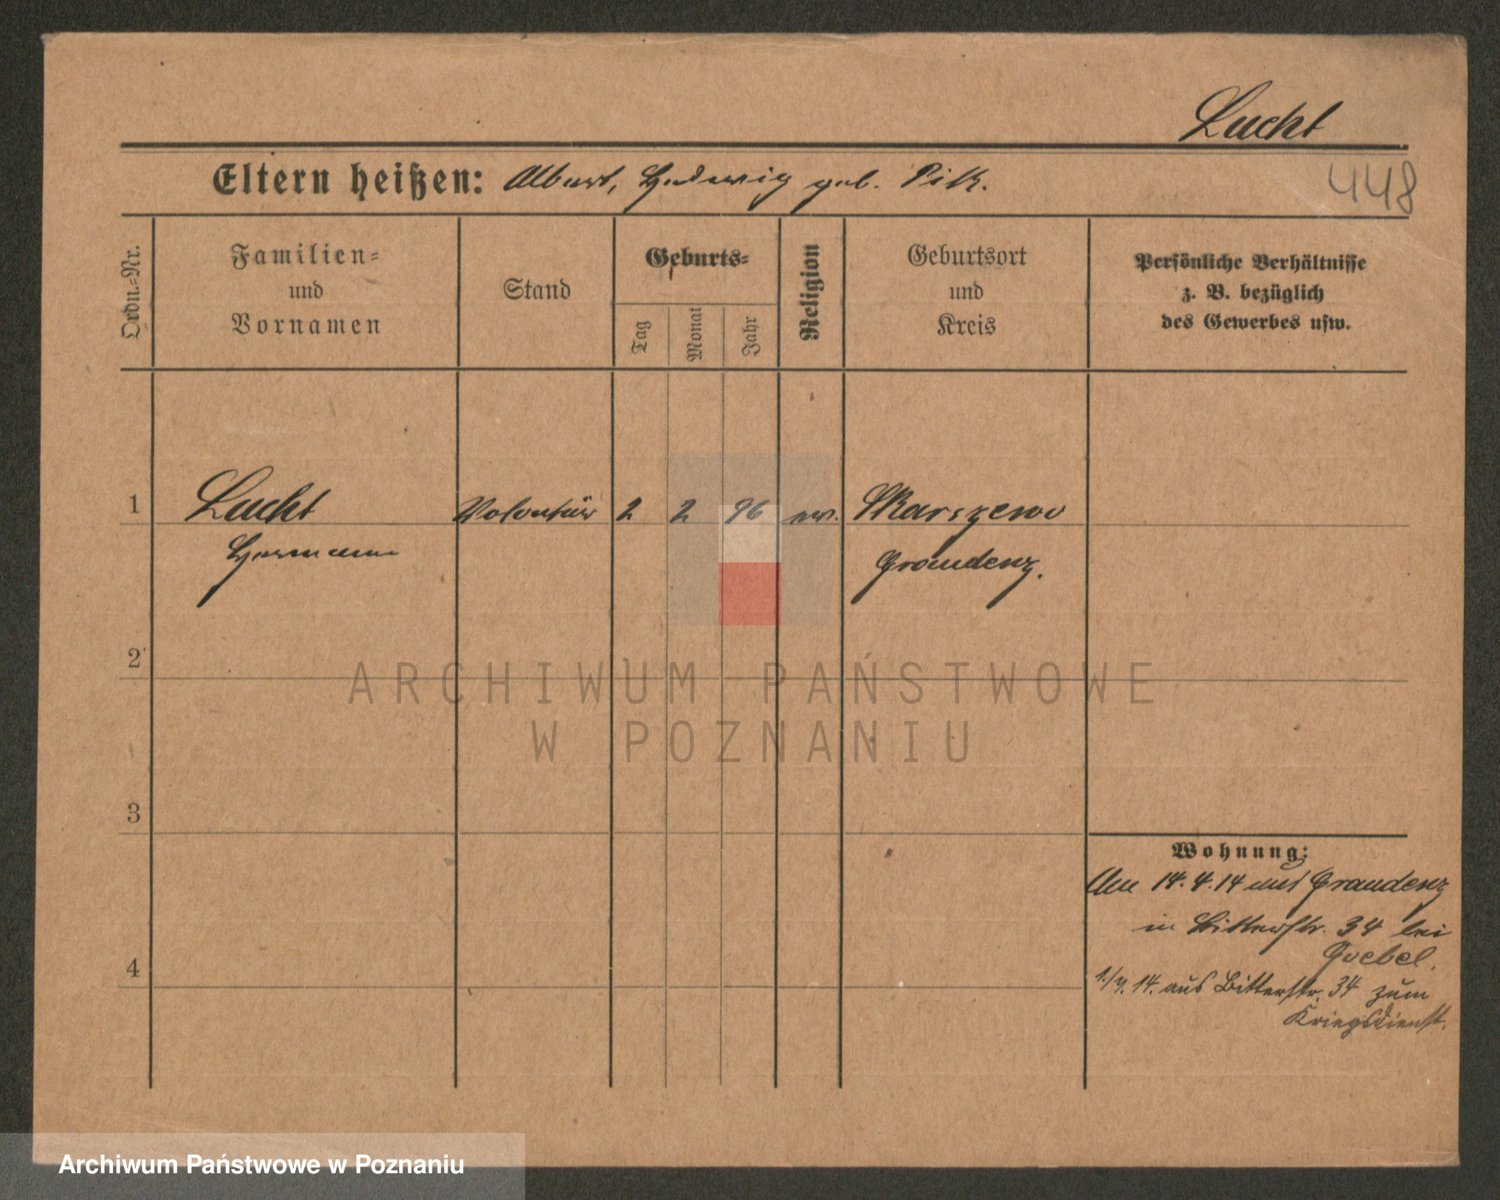 Lucht
Eltern heißen: Albert, Hedwig geb. Pik.
448
Ordn.-Nr.
Familien-
und
Vornamen
Stand
Geburts-
Tag
Monat
Jahr
Religion
Geburtsort
und
Kreis
Persönliche Verhältnisse
z. B. bezüglich
des Gewerbes usw.
1 Lucht Volontär 2 2 96 ev. Skarszewo
Hermann Graudenz.
2
3
4
Wohnung:
Am 14.4.14 aus Graudenz
in Bitterstr. 34 bei
Goebel.
14. aus Bitterstr. 34 zum
Kriegsdienst.
ARCHIWUM PAŃSTWOWE
W POZNANIU
Archiwum Państwowe w Poznaniu